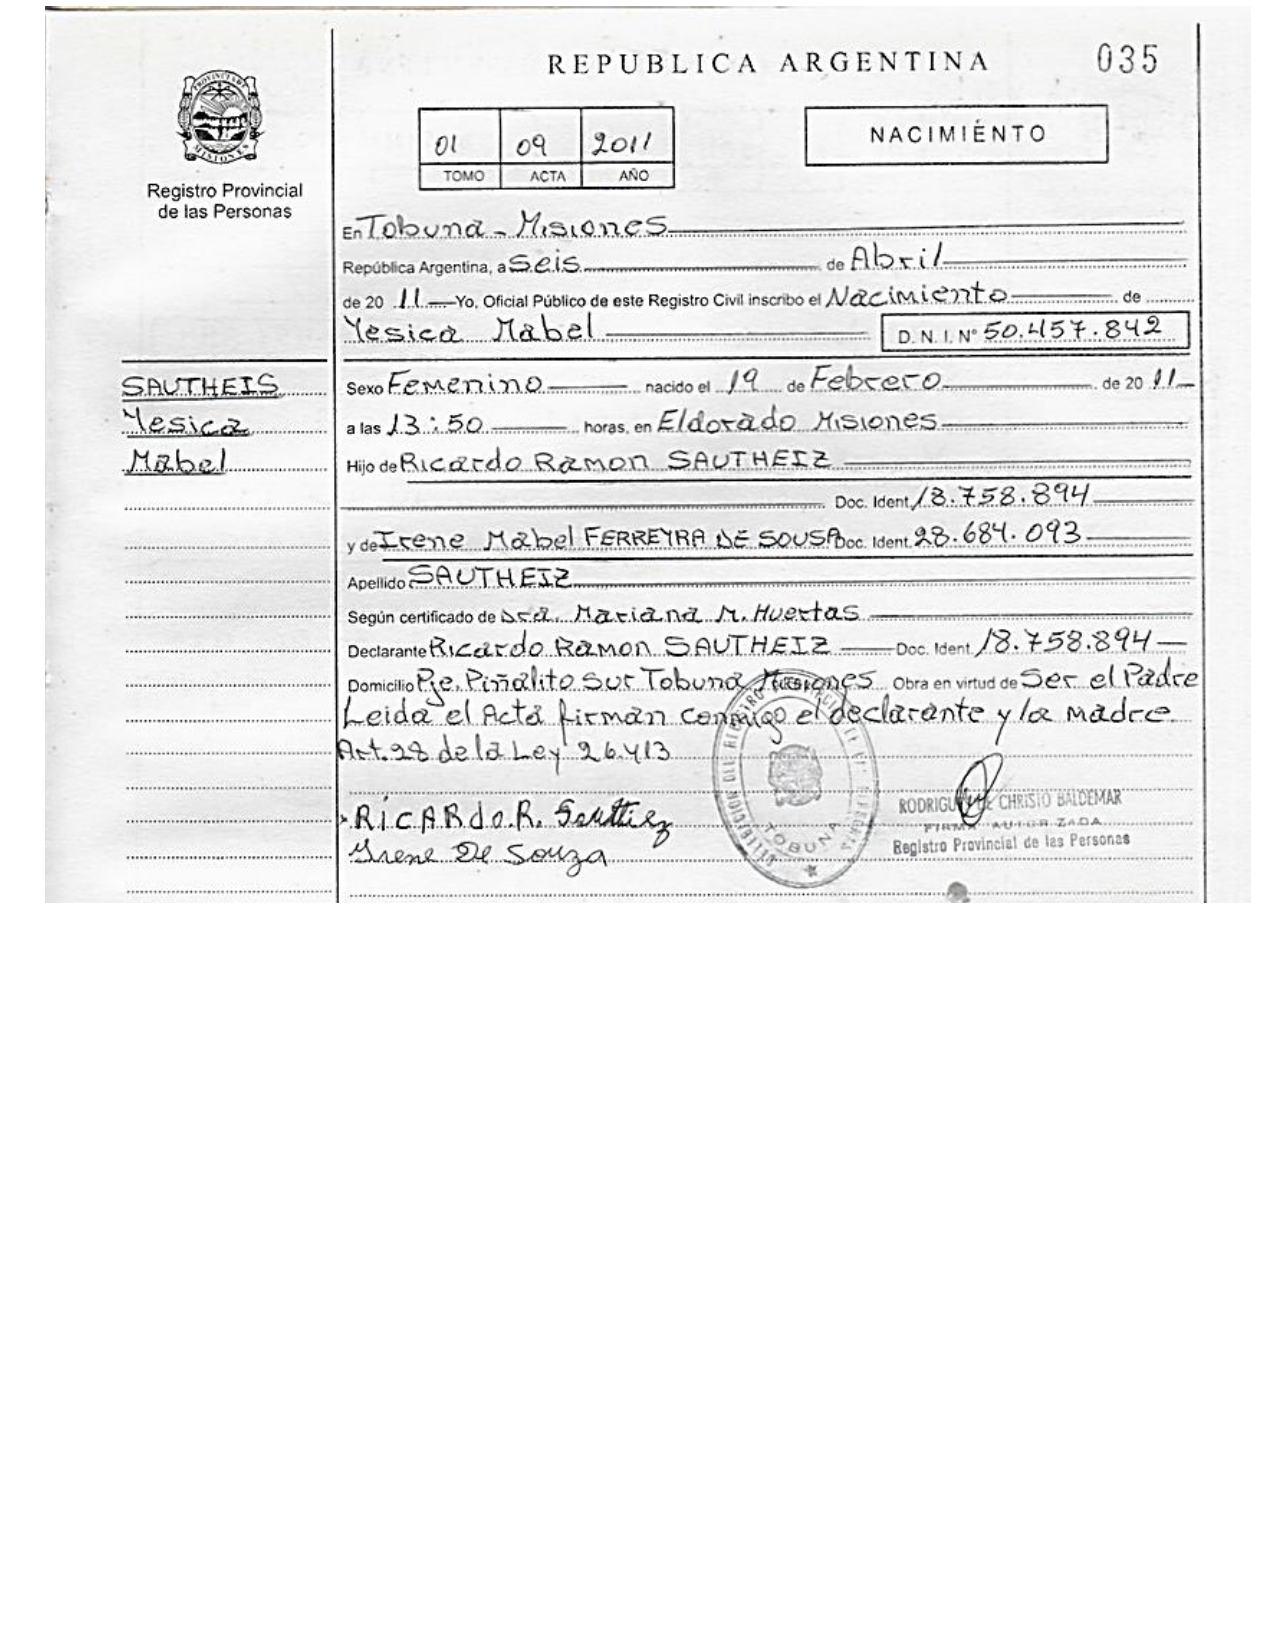 REPUBLICA ARGENTINA 035
PROVINCIA DE MISIONES
Registro Provincial
de las Personas
01 09 2011
TOMO ACTA AÑO
NACIMIENTO
En Tobuna - Misiones
República Argentina, a Seis de Abril
de 20 11 Yo, Oficial Público de este Registro Civil inscribo el Nacimiento de
Yesica Mabel D. N. I. Nº 50.457.842
SAUTHEIS
Yesica
Mabel
Sexo Femenino nacido el 19 de Febrero de 20 11
a las 13:50 horas, en Eldorado Misiones
Hijo de Ricardo Ramon SAUTHEIZ
Doc. Ident. 18.758.894
y de Irene Mabel FERREYRA DE SOUSA Doc. Ident. 28.684.093
Apellido SAUTHEIZ
Según certificado de Dra. Mariana M. Huertas
Declarante Ricardo Ramon SAUTHEIZ Doc. Ident. 18.758.894
Domicilio Pje. Piñalito Sur Tobuna Misiones Obra en virtud de Ser el Padre
Leida el Acta firman conmigo el declarante y la madre
Art. 28 de la Ley 26.413
RICARdo.R. Sauttiez
Irene De Souza
TOBUNA
CHRISIO BALDEMAR
FIRMA AUTORIZADA
Registro Provincial de las Personas